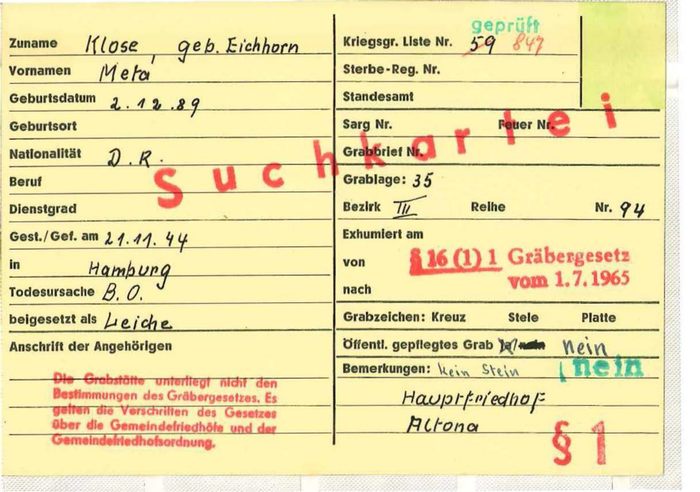 geprüft
Zuname Klose, geb. Eichhorn
Vornamen Meta
Geburtsdatum 2.12.89
Geburtsort
Nationalität D.R.
Beruf
Dienstgrad
Gest./Gef. am 21.11.44
in Hamburg
Todesursache B.O.
beigesetzt als Leiche
Anschrift der Angehörigen
Die Grabstätte unterliegt nicht den
Bestimmungen des Gräbergesetzes. Es
gelten die Vorschriften des Gesetzes
über die Gemeindefriedhöfe und der
Gemeindefriedhofsordnung.
Suchkartei
Kriegsgr. Liste Nr. 59 847
Sterbe-Reg. Nr.
Standesamt
Sarg Nr. Feuer Nr.
Grabbrief Nr.
Grablage: 35
Bezirk III Reihe Nr. 94
Exhumiert am
von
nach
§ 16 (1) 1 Gräbergesetz
vom 1.7.1965
Grabzeichen: Kreuz Stele Platte
Öffentl. gepflegtes Grab nein
Bemerkungen: kein Stein nein
Hauptfriedhof
Altona
§ 1